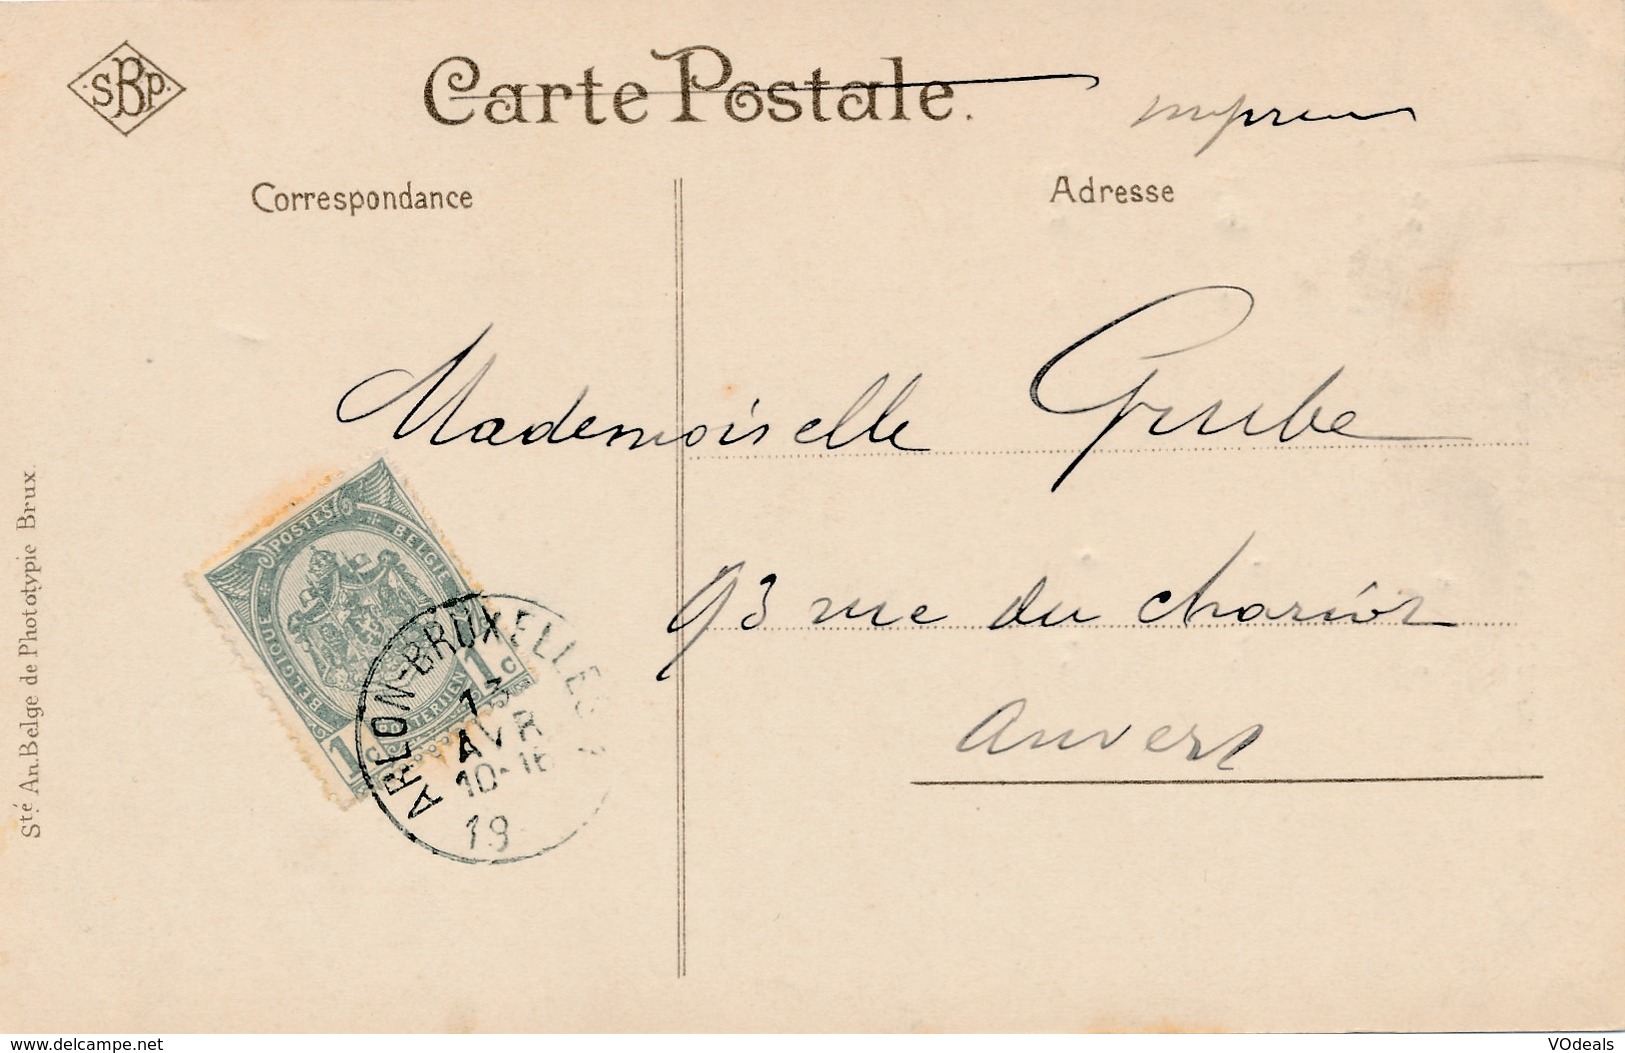 SBP
Carte Postale.
Correspondance
Adresse
Mademoiselle Grube
93 rue du chariot
Anvers
POSTES
BELGIE
BELGIQUE
POSTERIJEN
1c
1c
ARLON-BRUXELLES
13
AVR
10-16
19
Sté An. Belge de Phototypie Brux.
www.delcampe.net
VOdeals